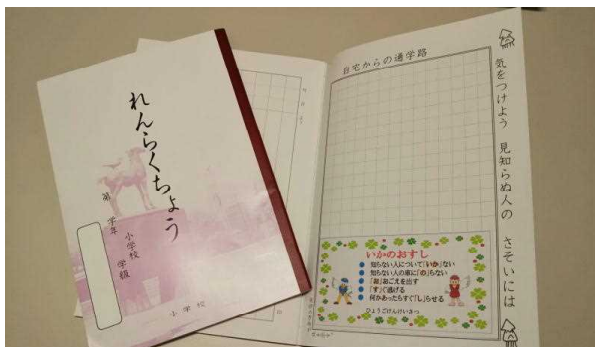 れんらくちょう
小学校
第 学年 学級
小学校
自宅からの通学路
気をつけよう 見知らぬ人の さそいには
いかのおすし
知らない人について「いか」ない
知らない人の車に「の」らない
「お」おごえを出す
「す」ぐ逃げる
何かあったらすぐ「し」らせる
ひょうごけんけいさつ